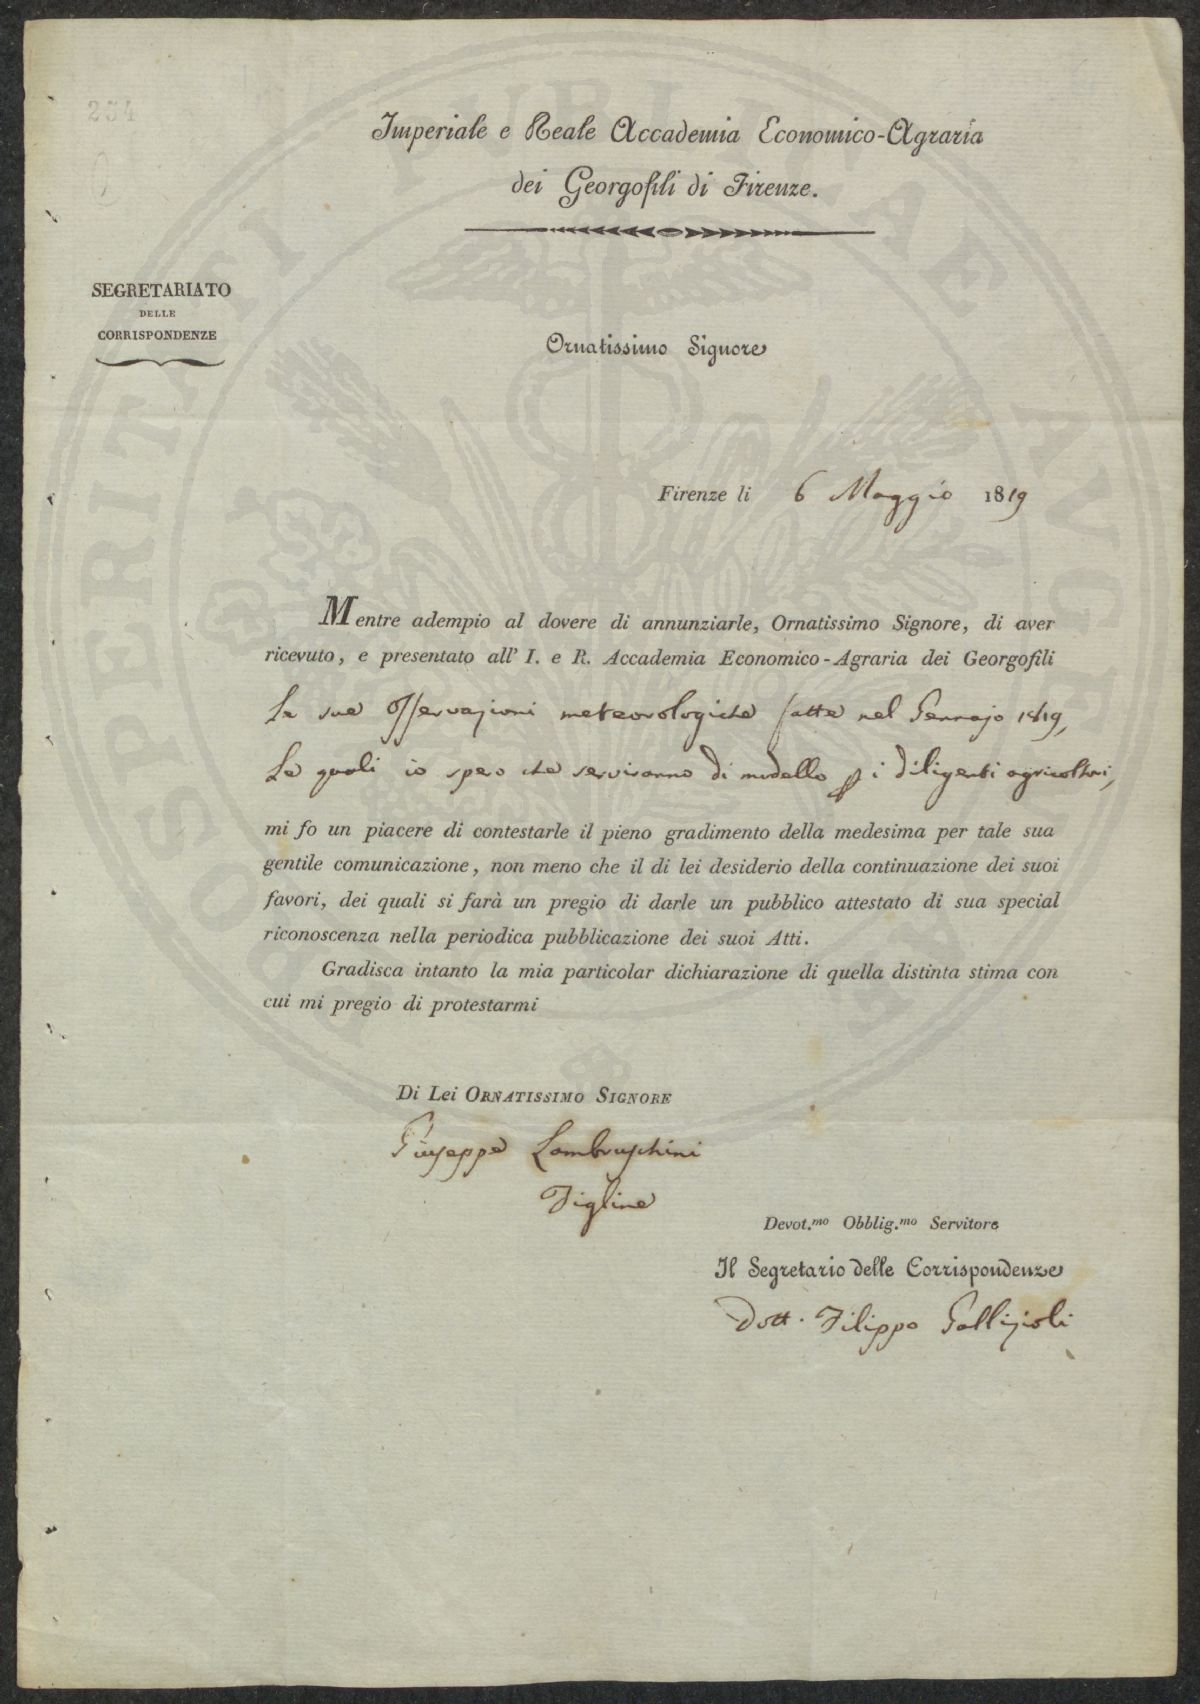 234
Imperiale e Reale Accademia Economico-Agraria
dei Georgofili di Firenze.
SEGRETARIATO
DELLE
CORRISPONDENZE
Ornatissimo Signore
Firenze li 6 Maggio 1819
Mentre adempio al dovere di annunziarle, Ornatissimo Signore, di aver
ricevuto, e presentato all' I. e R. Accademia Economico-Agraria dei Georgofili
Le sue Osservazioni meteorologiche fatte nel Gennajo 1819,
Le quali io spero che serviranno di modello p i diligenti agricoltori,
mi fo un piacere di contestarle il pieno gradimento della medesima per tale sua
gentile comunicazione, non meno che il di lei desiderio della continuazione dei suoi
favori, dei quali si farà un pregio di darle un pubblico attestato di sua special
riconoscenza nella periodica pubblicazione dei suoi Atti.
Gradisca intanto la mia particolar dichiarazione di quella distinta stima con
cui mi pregio di protestarmi
Di Lei ORNATISSIMO SIGNORE
Giuseppe Lambruschini
Figline
Devot.mo Obblig.mo Servitore
Il Segretario delle Corrispondenze
Dott. Filippo Gallizioli
PROSPERITATI PUBLICAE AUGENDAE